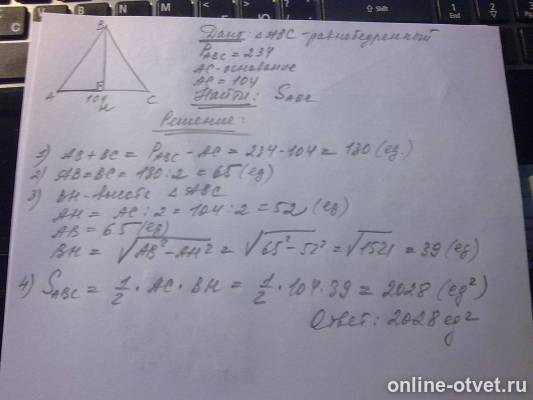 B
A
C
104
H
Дано: △ABC - равнобедренный
P_ABC = 234
AC - основание
AC = 104
Найти: S_ABC
Решение:
1) AB + BC = P_ABC - AC = 234 - 104 = 130 (ед.)
2) AB = BC = 130 : 2 = 65 (ед)
3) BH - высота △ABC
AH = AC : 2 = 104 : 2 = 52 (ед)
AB = 65 (ед)
BH = √AB² - AH² = √65² - 52² = √1521 = 39 (ед)
4) S_ABC = 1/2 · AC · BH = 1/2 · 104 · 39 = 2028 (ед²)
Ответ: 2028 ед²
online-otvet.ru